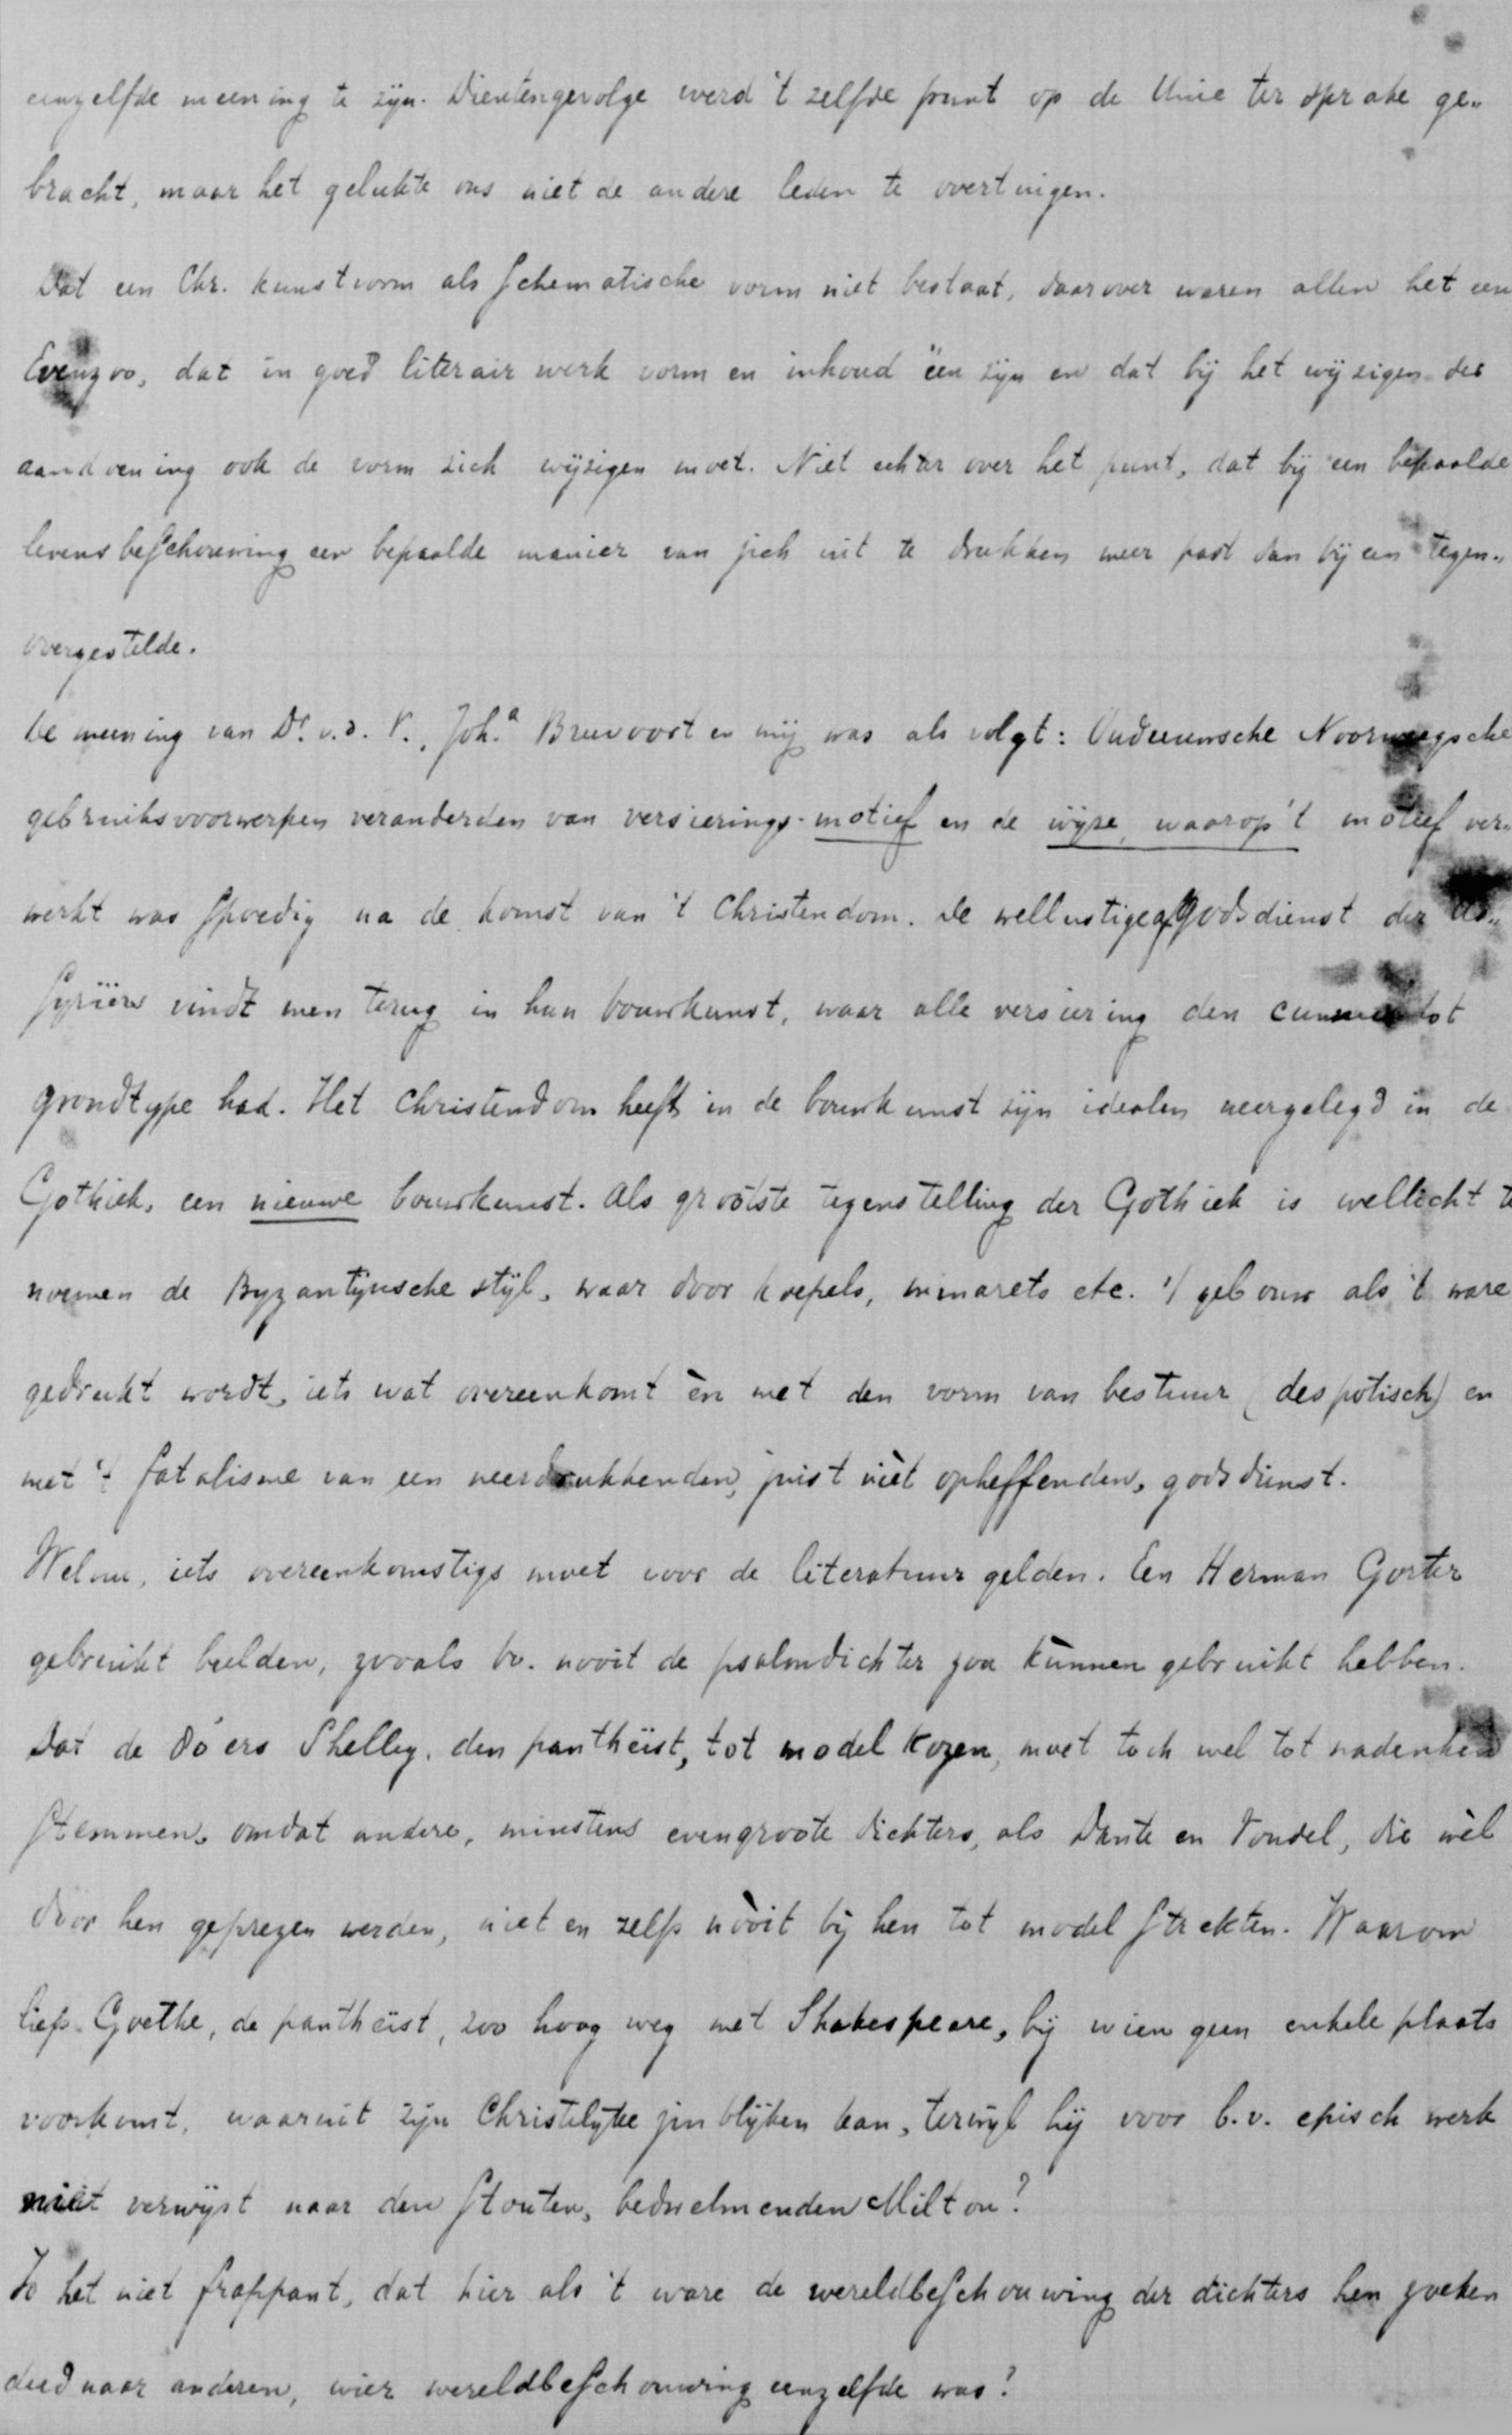 eenzelfde meening te zijn. Dientengevolge werd 't zelfde punt op de Unie ter sprake ge„
bracht, maar het gelukte ons niet de andere leden te overtuigen.
Dat een Chr. kunstvorm als schematische vorm niet bestaat, daarover waren allen het een
Evenzoo, dat in goed literair werk vorm en inhoud één zijn en dat bij het wijzigen der
aandoening ook de vorm zich wijzigen moet. Niet echter over het punt, dat bij een bepaalde
levensbeschouwing een bepaalde manier van zich uit te drukken meer past dan bij een tegen„
overgestelde.
De meening van Dr. v.d. V., Joh.a Breevoort en mij was als volgt: Oudeeuwsche Noorweegsche
gebruiksvoorwerpen veranderden van versierings-motief en de wijze, waarop 't motief ver„
werkt was spoedig na de komst van 't Christendom. De wellustige godsdienst der As„
syriërs vindt men terug in hun bouwkunst, waar alle versiering den tot
grondtype had. Het Christendom heeft in de bouwkunst zijn idealen neergelegd in de
Gothiek, een nieuwe bouwkunst. Als grootste tegenstelling der Gothiek is wellicht te
noemen de Byzantijnsche stijl, waar door koepels, minarets etc. 't gebouw als 't ware
gedrukt wordt, iets wat overeenkomt èn met den vorm van bestuur (despotisch) en
met 't fatalisme van een neerdrukkenden, juist nièt opheffenden, godsdienst.
Welnu, iets overeenkomstigs moet voor de literatuur gelden. Een Herman Gorter
gebruikt beelden, zooals bv. nooit de psalmdichter zou kùnnen gebruikt hebben.
Dat de 80ers Shelley, den pantheïst, tot model kozen, moet toch wel tot nadenken
stemmen, omdat andere, minstens evengroote dichters, als Dante en Vondel, die wèl
door hen geprezen werden, niet en zelfs nòòit bij hen tot model strekten. Waarom
liep Goethe, de pantheïst, zoo hoog weg met Shakespeare, bij wien geen enkele plaats
voorkomt, waaruit zijn Christelijke zin blijken kan, terwijl hij voor b.v. episch werk
niet verwijst naar den stouten, bedwelmenden Milton?
Is het niet frappant, dat hier als 't ware de wereldbeschouwing der dichters hen zoeken
deed naar anderen, wier wereldbeschouwing eenzelfde was?